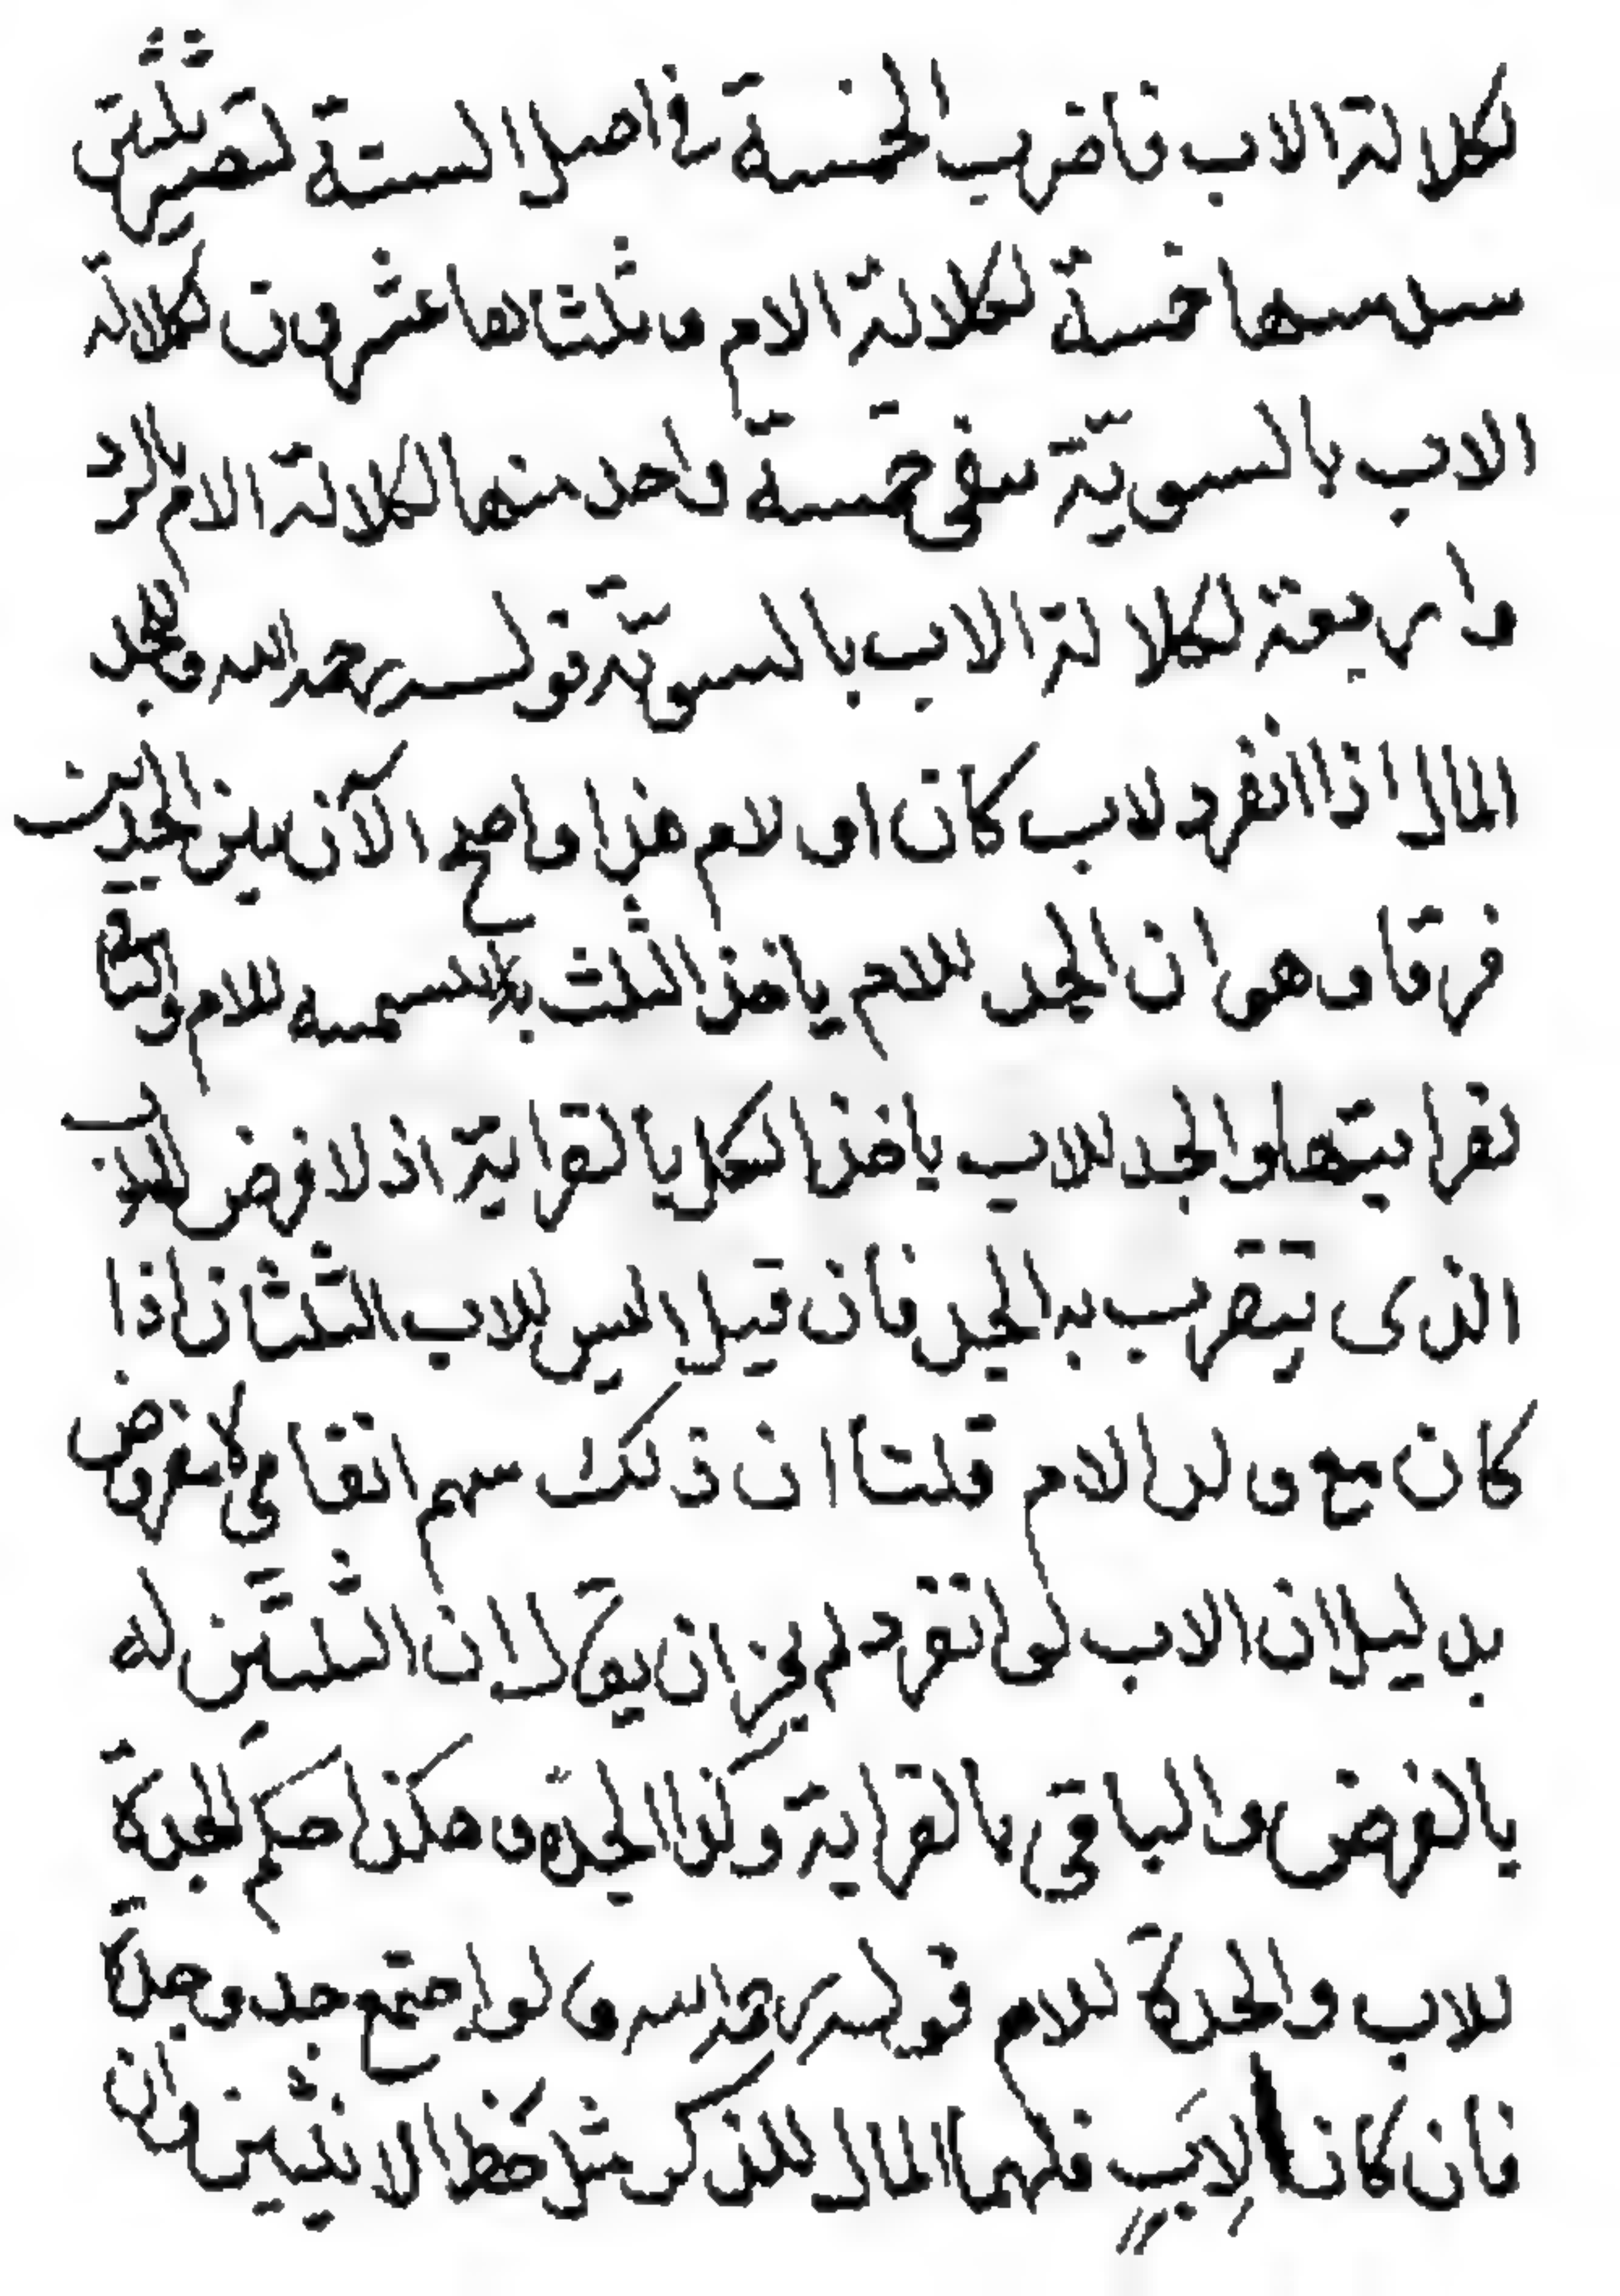 لكلالة الاب فاضرب الخمسة في اصل الستة تصير ثلثين
سدسها خمسة لكلالة الام و ثلثاها عشرون لكلالة
الاب بالسوية يبقى خمسة واحد منها لكلالة الام بالرد
واربعة لكلالة الاب بالسوية قوله رحمه الله وللجد
المال اذا انفرد لاب كان او لام هذا واضح الآن بين الجدين
فرقا وهو ان الجد للام ياخذ الثلث بالتسمية للام والباقي
بقرابتها والجد للاب ياخذ الكل بالقرابة اذ لا فرض للاب
الذي يتقرب به الجد فان قيل اليس للاب الثلثان اذا
كان مع ولد الام قلنا ان ذلك سهم اتفاقي لا مفروض
بدليل ان الاب لو انفرد لم يجز ان يقال ان الثلثين له
بالفرض والباقي بالقرابة وكذا الجدة و هكذا حكم الجدة
للاب والجدة للام قوله رحمه الله ولو اجتمع جد وجدة
فان كانا لابٍ فلهما المال للذكر مثل حظ الانثيين وان